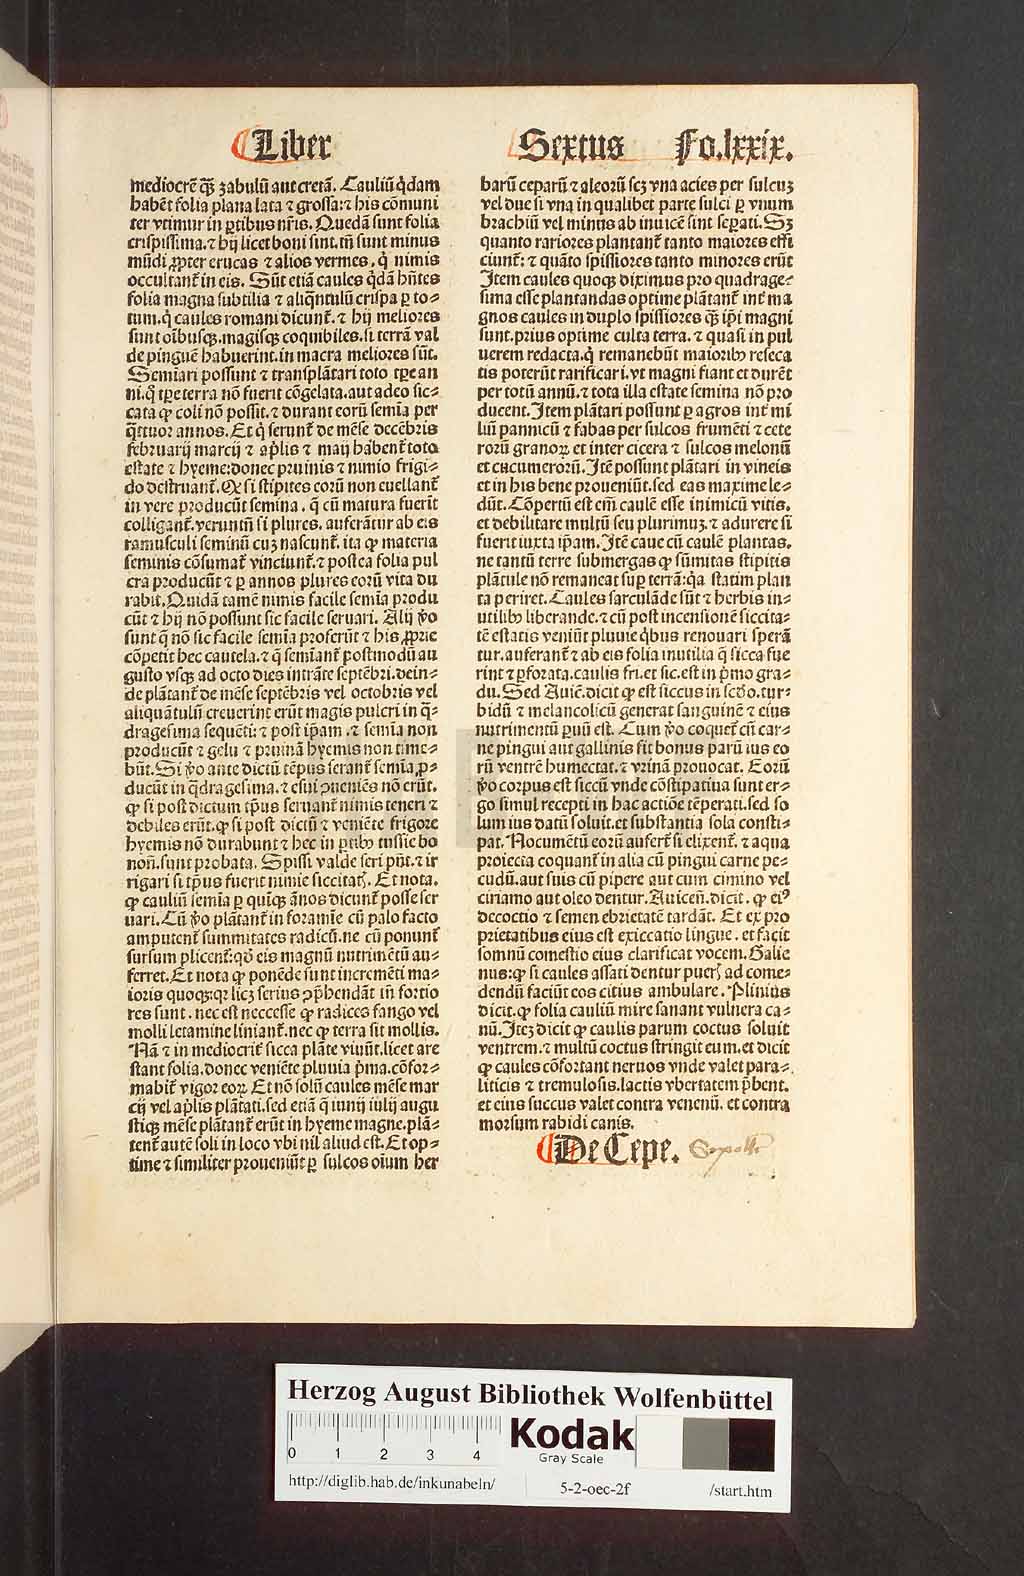 Liber Sextus Fo.lxxix.
mediocrē q̄ȝ zabulū aut cretā. Cauliū q̇dam
habēt folia plana lata ⁊ grossa:⁊ his cōmuni
ter vtimur in ꝑtibus nr̄is. Quedā sunt folia
crispissima.⁊ hij licet boni sint.tn̄ sunt minus
mūdi ꝓpter erucas ⁊ alios vermes, q̇ nimis
occultant̄ in eis. Sūt etiā caules q̇dā hn̄tes
folia magna subtilia ⁊ aliq̄ntulū crispa ꝑ to⸗
tum.q̇ caules romani dicunt̄. ⁊ hij meliores
sunt oībusqȝ.magisqȝ coquibiles.si terrā val
de pinguē habuerint.in macra meliores sūt.
Seminari possunt ⁊ transplātari toto tꝑe an
ni.q̇ tꝑe terra nō fuerit cōgelata.aut adeo sic⸗
cata ꝙ coli nō possit.⁊ durant eorū semīa per
q̄ttuor annos. Et q̇ serunt̄ de mēse decēbris
februarij marcij ⁊ apl̄is ⁊ maij habent̄ tota
estate ⁊ hyeme:donec pruinis ⁊ nimio frigi⸗
do destruant̄. Ꝙ si stipites eorū non euellant̄
in vere producūt semina. q̄ cū matura fuerīt
colligant̄.veruntn̄ si plures. auferātur ab eis
ramusculi seminū cuȝ nascunt̄. ita ꝙ materia
seminis cōsumat̄ vinciunt̄.⁊ postea folia pul
cra producūt ⁊ ꝑ annos plures eorū vita du
rabit.Quidā tamē nimis facile semīa produ
cūt ⁊ hij nō possunt sic facile seruari. Alij v̊o
sunt q̄ nō sic facile semīa proferūt ⁊ his ꝓprie
cōpetit hec cautela.⁊ q̄ semīant̄ postmodū au
gusto vsqȝ ad octo dies intrāte septēbri.dein⸗
de plātant̄ de mēse septēbris vel octobris vel
aliquātulū creuerint erūt magis pulcri in q̄⸗
dragesima sequēti:⁊ post ip̄am .⁊ semīa non
producūt ⁊ gelu ⁊ pruinā hyemis non time⸗
būt.Si v̊o ante dictū tēpus serant̄ semīa,ꝓ⸗
ducūt in q̄dragesima.⁊ esui ꝯueniēs nō erūt.
ꝙ si post dictum tp̄us seruant̄ nimis teneri ⁊
debiles erūt.ꝙ si post dictū ⁊ veniēte frigore
hyemis nō durabunt ⁊ hec in ꝑtibȝ tussie bo
non̄.sunt probata. Spissi valde seri pn̄t.⁊ ir
rigari si tp̄us fuerit nimie siccitatꝭ. Et nota.
ꝙ cauliū semīa ꝑ quīqȝ ānos dicunt̄ posse ser
uari. Cū v̊o plātant̄ in foramīe cū palo facto
amputent̄ summitates radicū.ne cū ponunt̄
sursum plicent̄:qd̄ eis magnū nutrimētū au⸗
ferret.Et nota ꝙ ponēde sunt incremēti ma⸗
ioris quoqȝ:qꝛ licȝ serius ꝯp̄hendāt in̄ fortio
res sunt. nec est neccesse ꝙ radices fango vel
molli letamine liniant̄.nec ꝙ terra sit mollis.
Nā ⁊ in mediocrit̄ sicca plāte viuūt.licet are
stant folia.donec veniēte pluuia p̄ma.cōfor⸗
mabit̄ vigor eoꝝ. Et nō solū caules mēse mar
cij vel apl̄is plātati.sed etiā q̄ iunij iulij augu
stiqȝ mēse plātant̄ erūt in hyeme magne.plā⸗
tent̄ autē soli in loco vbi nil aliud est.Et op⸗
time ⁊ similiter proueniūt ꝑ sulcos oīum her
barū ceparū ⁊ aleorū scȝ vna acies per sulcuȝ
vel due si vna in qualibet parte sulci ꝑ vnum
brachiū vel minus ab inuicē sint seꝑati. Sȝ
quanto rariores plantant̄ tanto maiores effi
ciunt̄: ⁊ quāto spissiores tanto minores erūt
Item caules quoqȝ diximus pro quadrage⸗
sima esse plantandas optime plātant̄ int̄ ma
gnos caules in duplo spissiores q̄ȝ ip̄i magni
sunt.prius optime culta terra. ⁊ quasi in pul
uerem redacta.q̇ remanebūt maioribȝ reseca
tis poterūt rarificari.vt magni fiant et durēt
per totū annū.⁊ tota illa estate semina nō pro
ducent.Item plātari possunt ꝑ agros int̄ mi
liū pannicū ⁊ fabas per sulcos frumēti ⁊ cete
rorū granoꝝ et inter cicera ⁊ sulcos melonū
et cucumerorū.Itē possunt plātari in vineis
et in his bene proueniūt.sed eas maxime le⸗
dūt. Cōpertū est em̄ caulē esse inimicū vitis.
et debilitare multū seu plurimuȝ.⁊ adurere si
fuerit iuxta ip̄am.Itē caue cū caulē plantas.
ne tantū terre submergas ꝙ sūmitas stipitis
plātule nō remaneat suꝑ terrā:q̇a statim plan
ta periret.Caules sarculāde sūt ⁊ herbis in⸗
utilibȝ liberande.⁊ cū post incensionē siccita⸗
tē estatis veniūt pluuie q̇bus renouari sperā
tur.auferant̄ ⁊ ab eis folia inutilia q̄ sicca fue
rint ⁊ ꝑforata.caulis fri.et sic.est in p̄mo gra⸗
du. Sed Auic̄.dicit ꝙ est siccus in scd̄o.tur⸗
bidū ⁊ melancolicū generat sanguinē ⁊ eius
nutrimentū ꝑuū est. Cum v̊o coquet̄ cū car⸗
ne pingui aut gallinis fit bonus parū ius eo
rū ventrē humectat.⁊ vrinā prouocat. Eorū
v̊o corpus est siccū vnde cōstipatiua sunt er⸗
go simul recepti in hac actiōe tēperati.sed so
lum ius datū soluit.et substantia sola consti⸗
pat. Nocumētū eorū aufert̄ si elixent̄. ⁊ aqua
proiecta coquant̄ in alia cū pingui carne pe⸗
cudū.aut suis cū pipere aut cum cimino vel
ciriamo aut oleo dentur.Auicen̄.dicit. ꝙ eiꝰ
decoctio ⁊ semen ebrietatē tardāt. Et ex pro
prietatibus eius est exiccatio lingue. et facit
somnū comestio eius clarificat vocem.Galie
nus:ꝙ si caules assati dentur puerꝭ ad come⸗
dendū faciūt eos citius ambulare. Plinius
dicit.ꝙ folia cauliū mire sanant vulnera ca⸗
nū.Iteȝ dicit ꝙ caulis parum coctus soluit
ventrem.⁊ multū coctus stringit eum.et dicit
ꝙ caules cōfortant neruos vnde valet para⸗
liticis ⁊ tremulosis.lactis vbertatem p̄bent.
et eius succus valet contra venenū. et contra
morsum rabidi canis.
De Cepe.
Herzog August Bibliothek Wolfenbüttel
0 1 2 3 4
Kodak
Gray Scale
http://diglib.hab.de/inkunabeln/ 5-2-oec-2f /start.htm